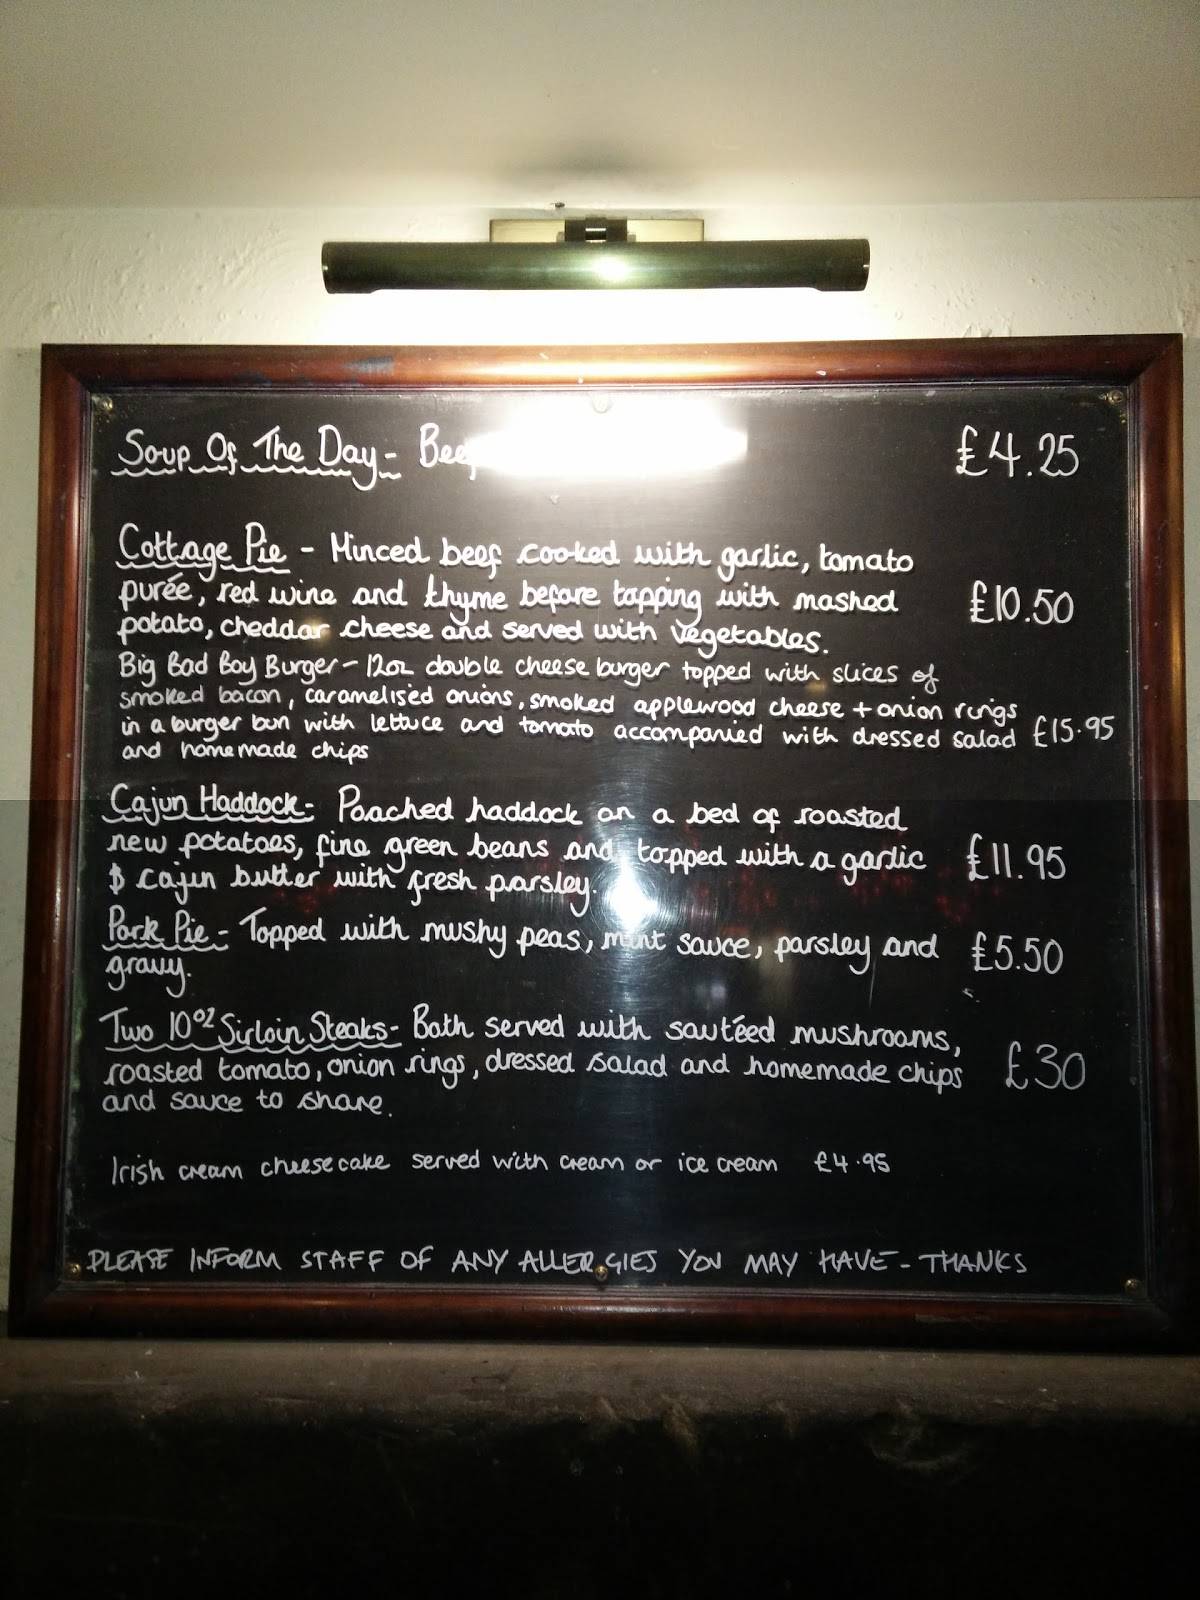 Soup Of The Day - £4.25
Cottage Pie - Minced beef cooked with garlic, tomato
purée, red wine and thyme before topping with mashed £10.50
potato, cheddar cheese and served with vegetables.
Big Bad Boy Burger - 12oz double cheese burger topped with slices of
smoked bacon, caramelised onions, smoked applewood cheese + onion rings
in a burger bun with lettuce and tomato accompanied with dressed salad £15.95
and homemade chips
Cajun Haddock - Poached haddock on a bed of roasted
new potatoes, fine green beans and topped with a garlic £11.95
& cajun butter with fresh parsley.
Pork Pie - Topped with mushy peas, mint sauce, parsley and £5.50
gravy.
Two 10oz Sirloin Steaks - Both served with sautéed mushrooms,
roasted tomato, onion rings, dressed salad and homemade chips £30
and sauce to share.
Irish cream cheesecake served with cream or ice cream £4.95
PLEASE INFORM STAFF OF ANY ALLERGIES YOU MAY HAVE - THANKS